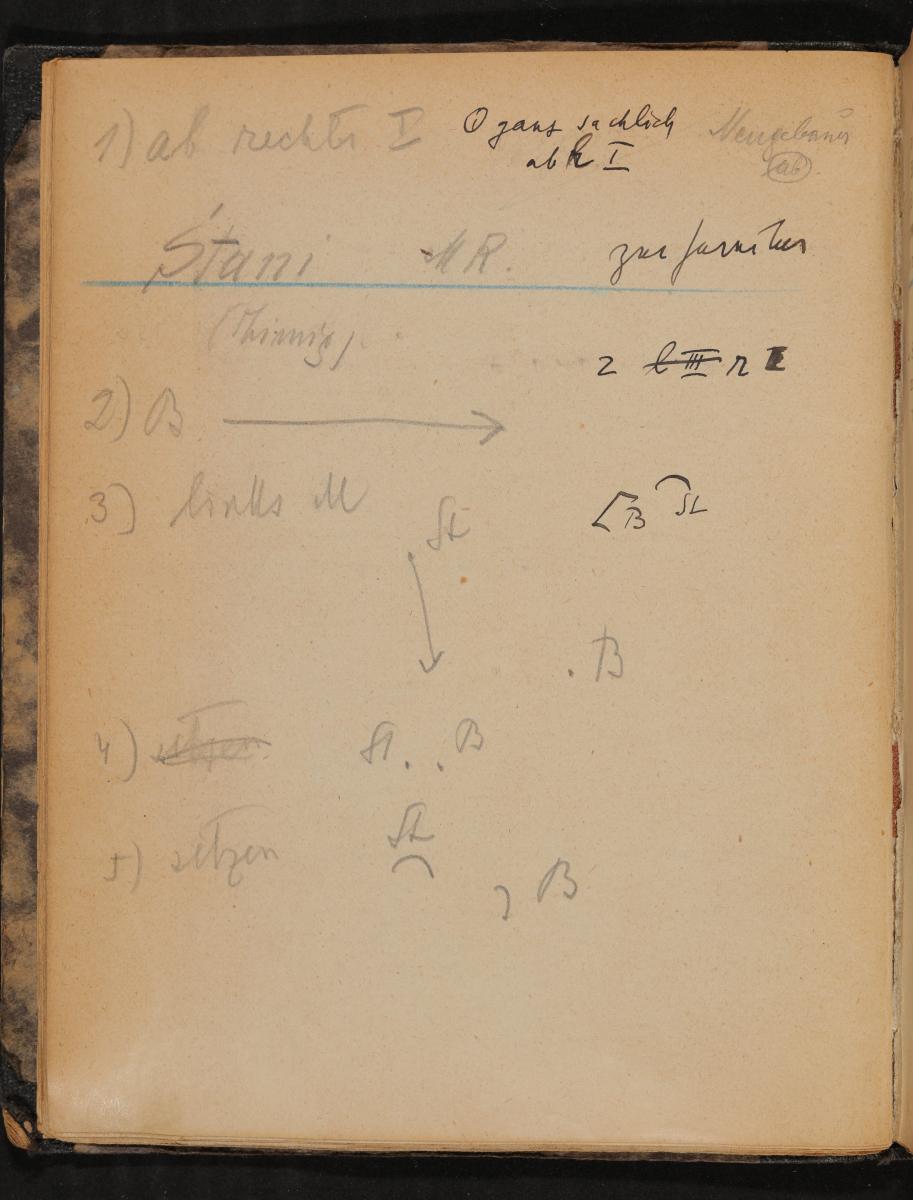 1) ab rechts I
① ganz sachlich
ab R I
Neugebauer
ab
Stani MR.
zur Garnitur
(Thimig)
2 l III r I
2) B
3) links M
St
B St
B
4) setzen
St B
5) setzen
St
B